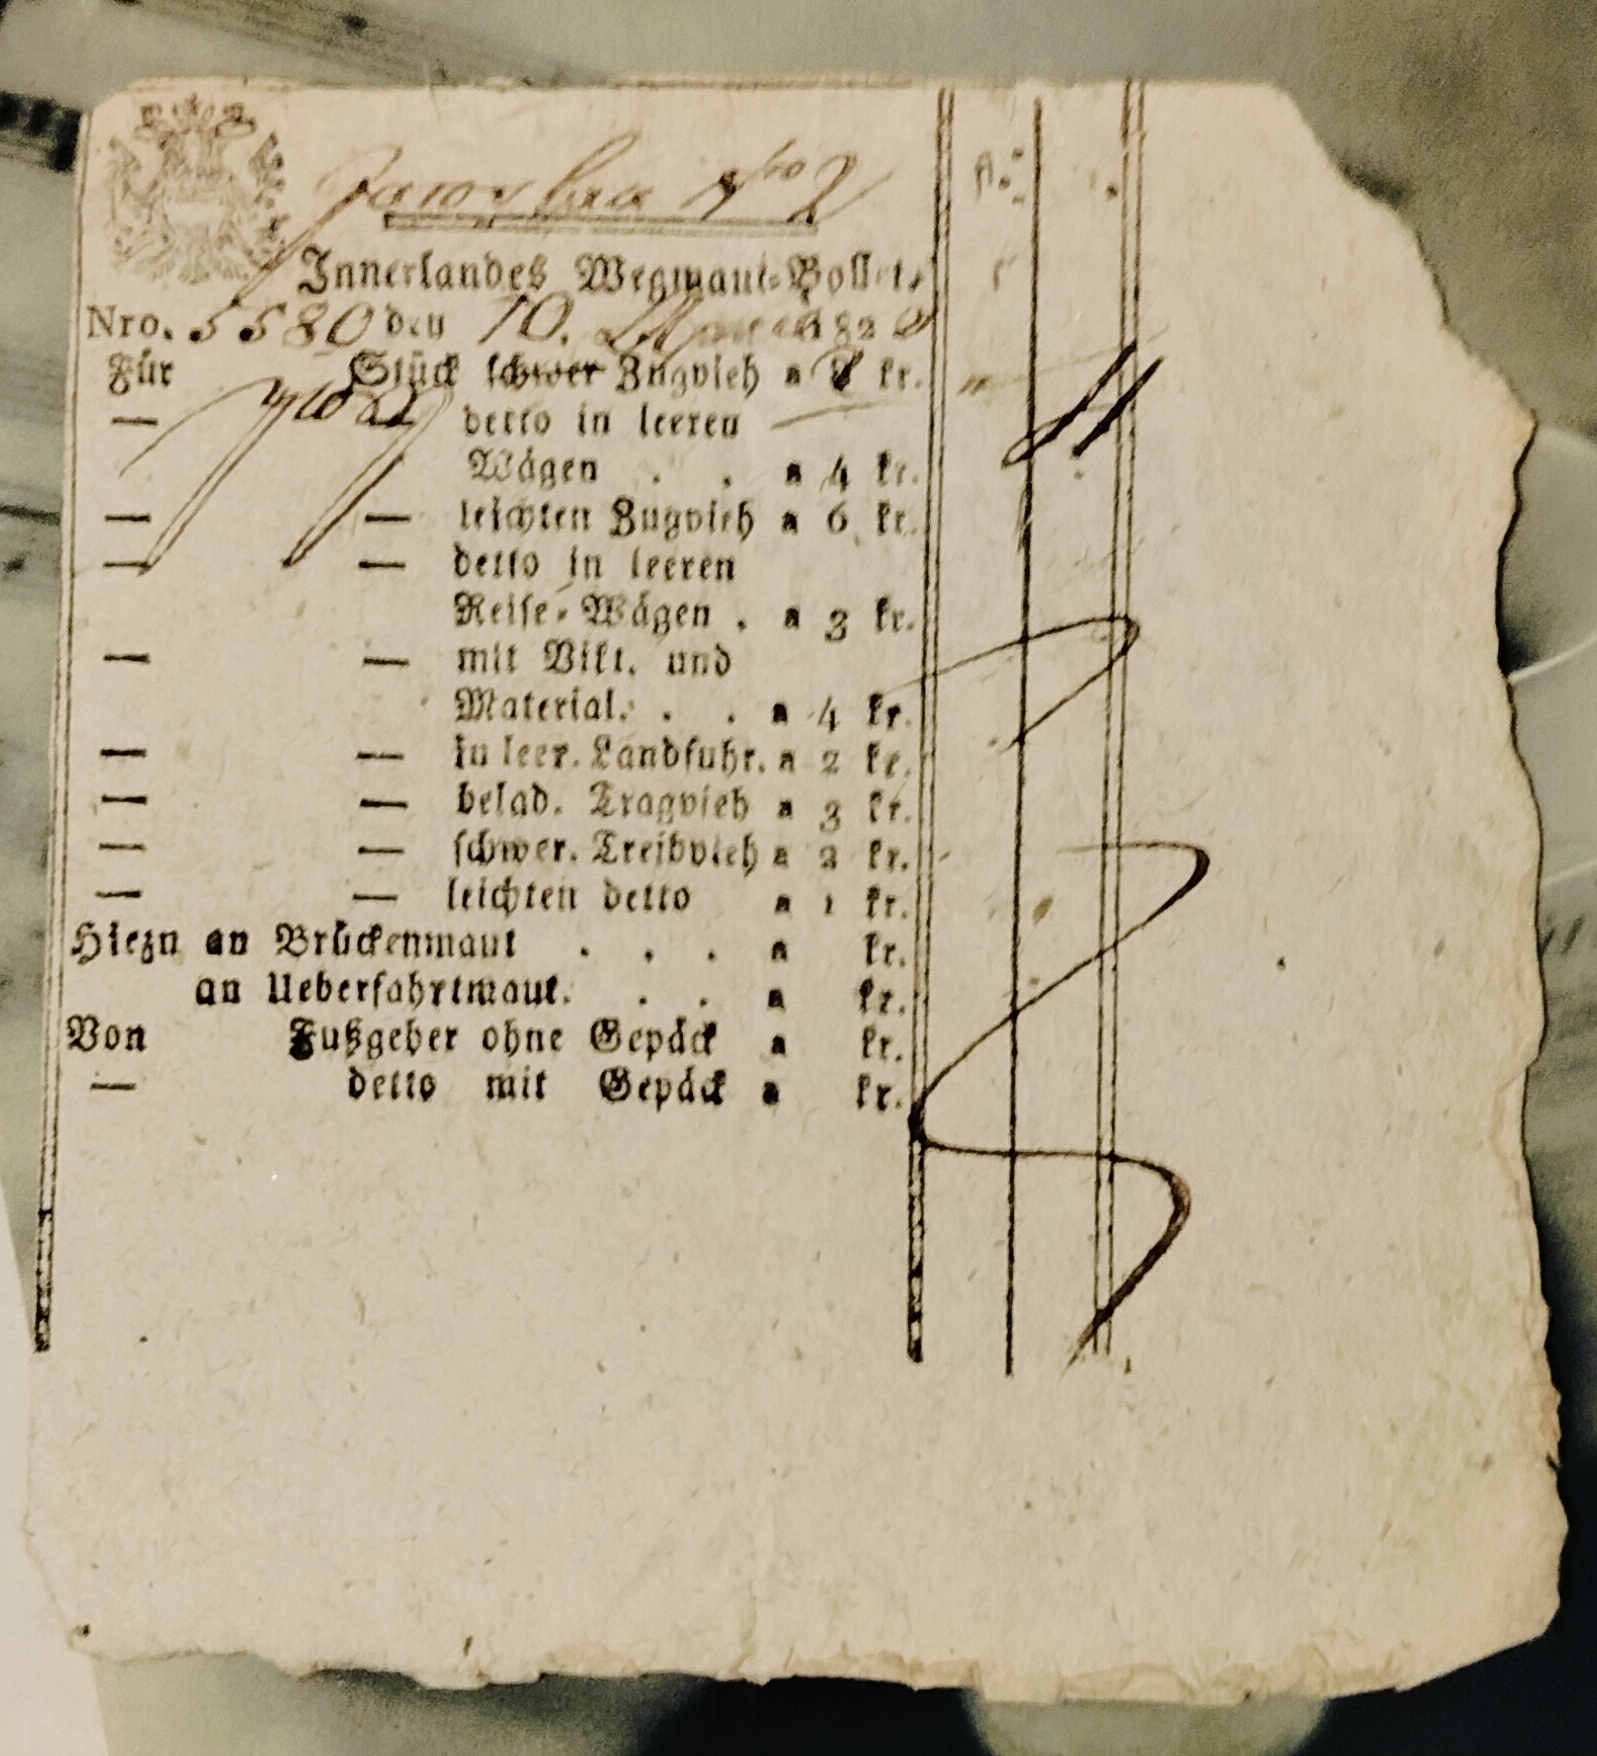 Nro 2
Innerlandes Wegmaut-Bollet.
Nro. 5580 den 10. 182
Für Stück schwer Zugvieh a kr.
— zwei detto in leeren
Wägen . . a 4 kr.
— — leichten Zugvieh a 6 kr.
— — detto in leeren
Reise-Wägen . a 3 kr.
— — mit Vikt. und
Material. . . a 4 kr.
— — in leer. Landfuhr. a 2 kr.
— — belad. Tragvieh a 3 kr.
— — schwer. Treibvieh a 2 kr.
— — leichten detto a 1 kr.
Hiezu an Brückenmaut . . . a kr.
an Ueberfahrtmaut. . . a kr.
Von Fußgeher ohne Gepäck a kr.
— detto mit Gepäck a kr.